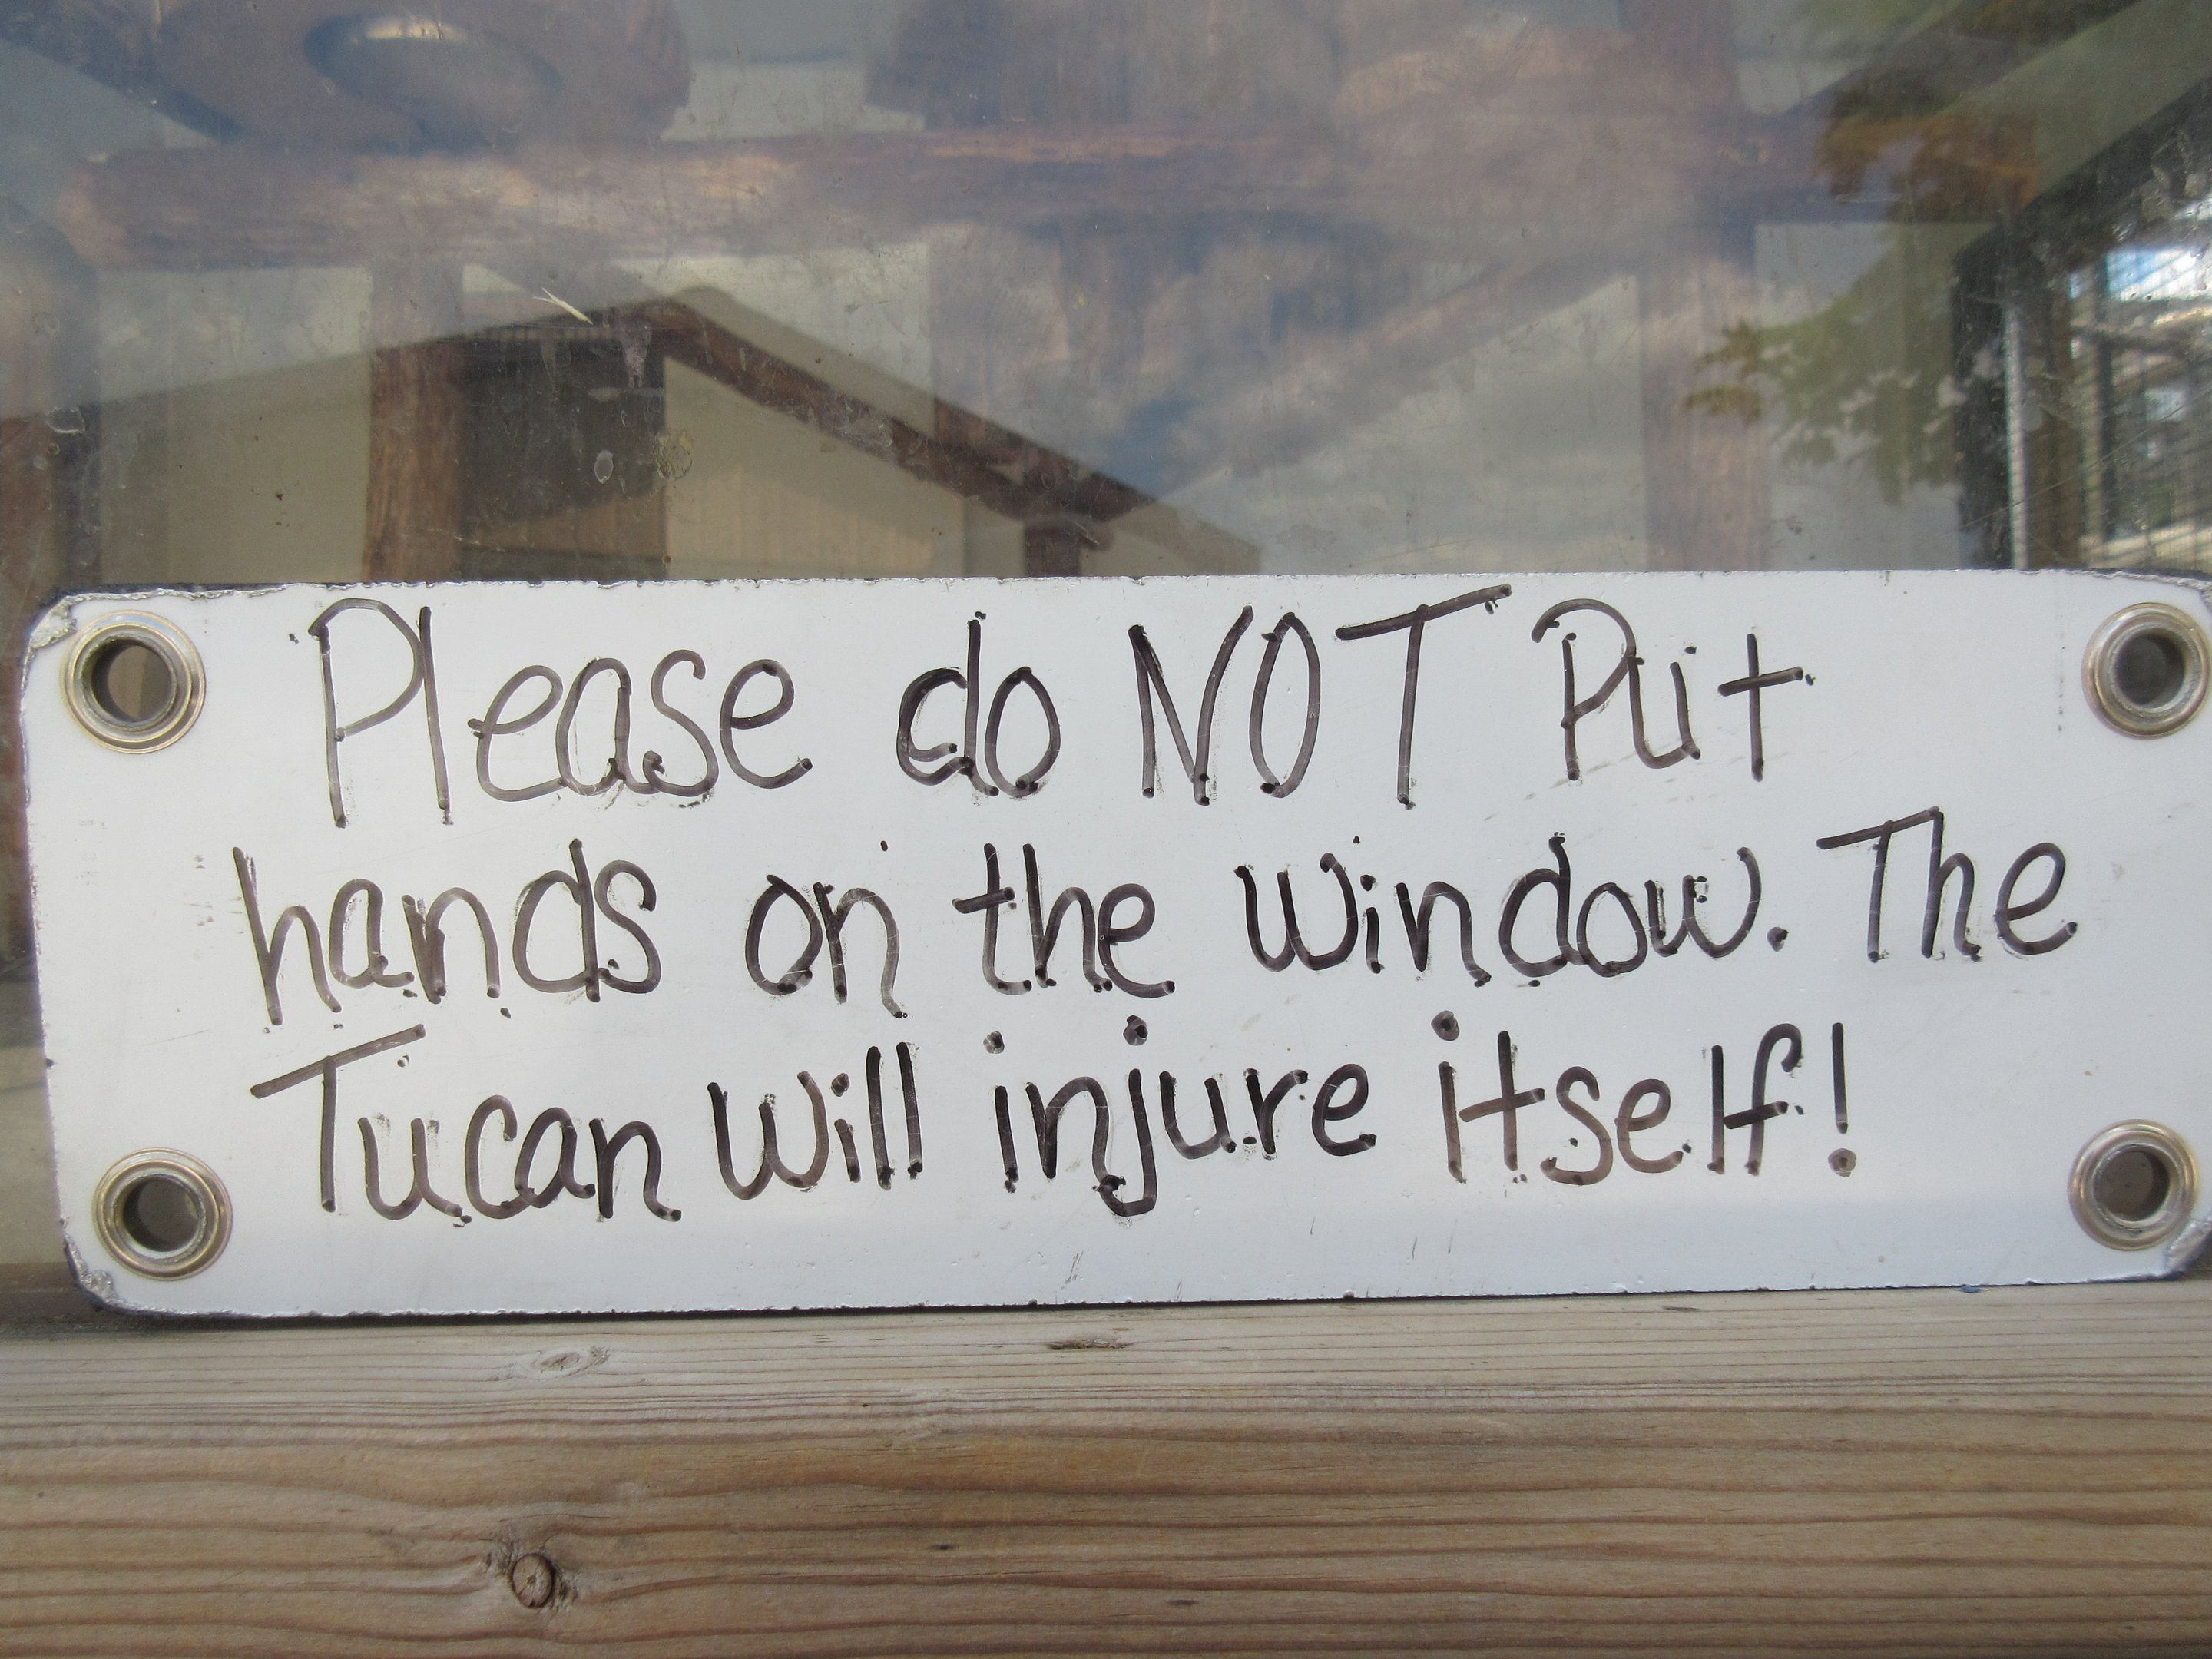 Please do NOT Put
hands on the window. The
Tucan will injure itself!